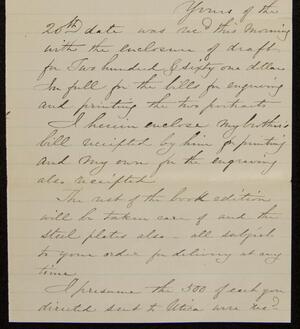 Yours of the
20th date was recd this morning
with the enclosure of draft
for Two hundred & sixty one dollars
in full for the bills for engraving
and printing the two portraits
I herein enclose my brother's
bill receipted by him for printing
and my own for the engraving
also receipted.
The rest of the book edition
will be taken care of and the
steel plates also - all subject
to your order for delivery at any
time.
I presume the 500 of each you
directed sent to Utica were recd